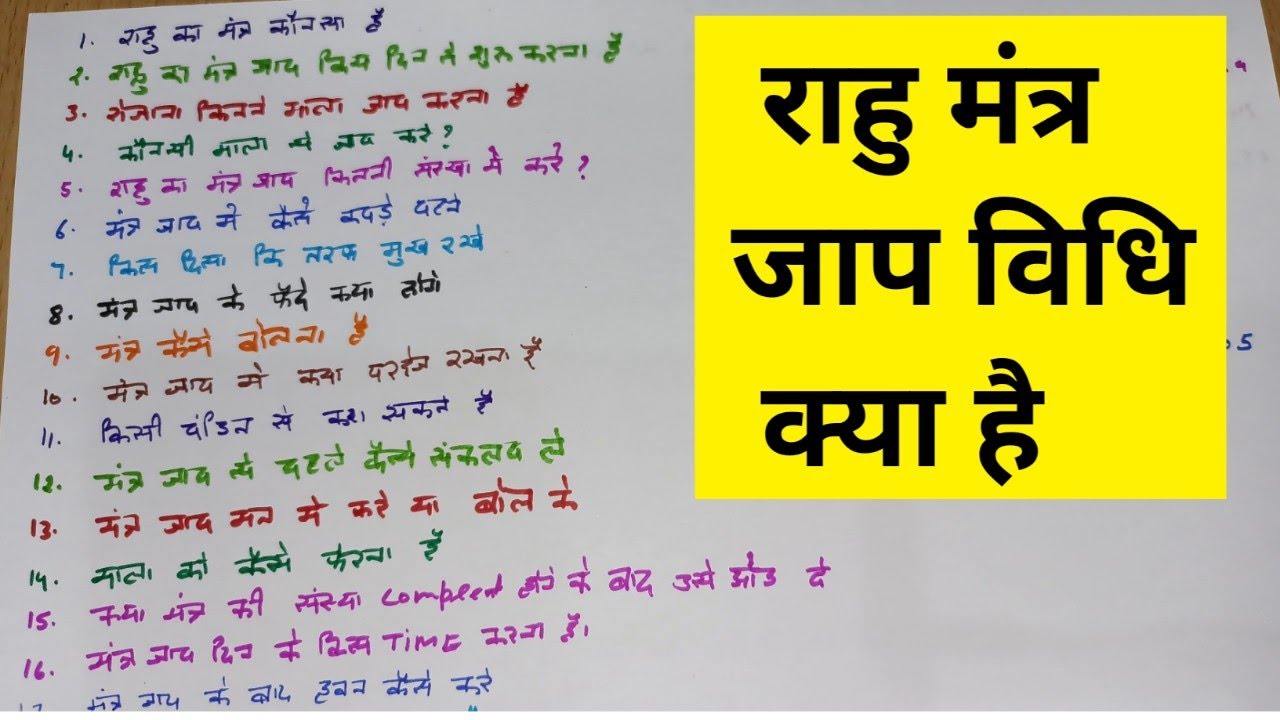 1. राहु का मंत्र कौनसा है
2. राहु का मंत्र जाप किस दिन से शुरू करना है
3. रोजाना कितने माला जाप करना है
4. कौनसी माला से जाप करे?
5. राहु का मंत्र जाप कितनी संख्या मे करे?
6. मंत्र जाप मे कैसे कपड़े पहने
7. किस दिशा कि तरफ मुख रखे
8. मंत्र जाप के फायदे क्या होंगे
9. मंत्र कैसे बोलना है
10. मंत्र जाप मे क्या परहेज रखना है
11. किसी पंडित से करा सकते है
12. मंत्र जाप से पहले कैसे संकल्प ले
13. मंत्र जाप मन मे करे या बोल के
14. माला को कैसे फेरना है
15. क्या मंत्र की संख्या होने के बाद उसे छोड दे
16. मंत्र जाप दिन के किस TIME करना है।
मंत्र जाप के बाद हवन कैसे करे
राहु मंत्र
जाप विधि
क्या है
5